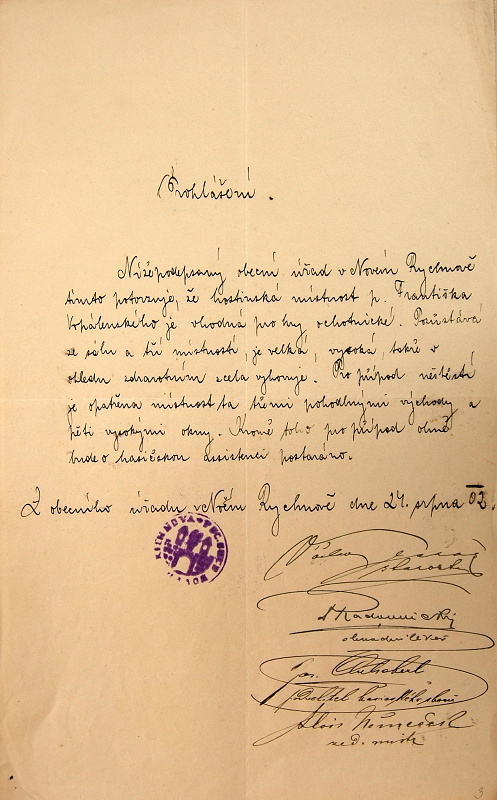 Prohlášení.
Nížepodepsaný obecní úřad v Novém Rychnově
tímto potvrzuje, že hostinská místnost p. Františka
Vopálenského je vhodná pro hry ochotnické. Pozůstává
ze sálu a tří místností, je velká, vysoká, takže v
ohledu zdravotním zcela vyhovuje. Pro případ neštěstí
je opatřena místnost ta třemi pohodlnými východy a
pěti vysokými okny. Kromě toho pro případ ohně
bude o hasičskou assistenci postaráno.
Z obecního úřadu v Novém Rychnově dne 27. srpna 02.
starosta
obvodní lékař
Jos.
ředitel hasičského sboru
Alois
zed. mistr
3